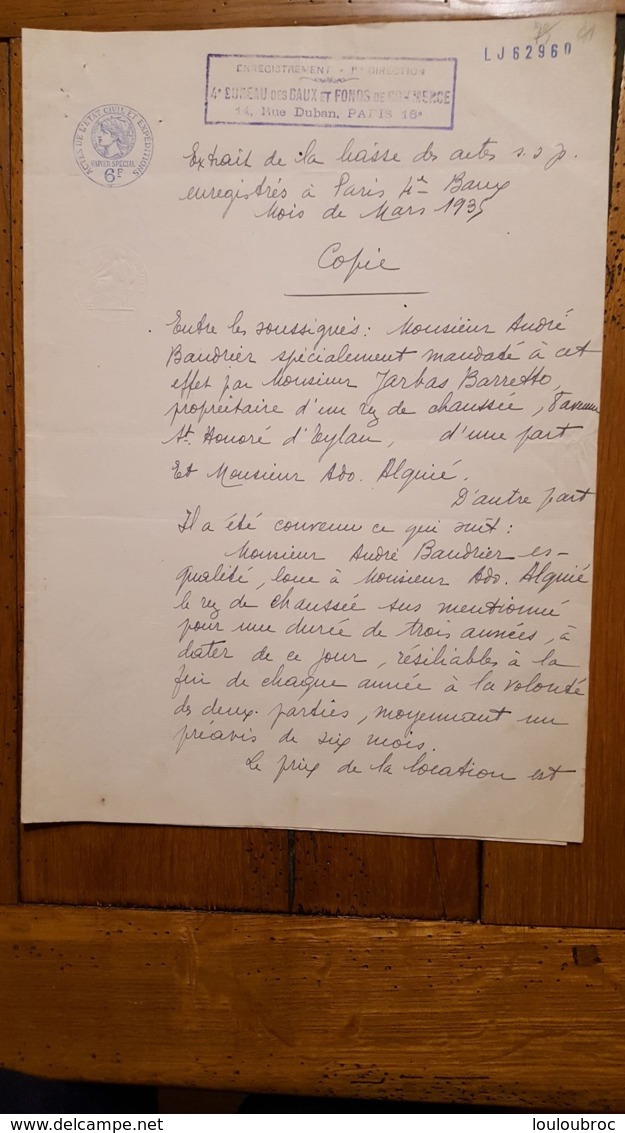 LJ62960
ENREGISTREMENT - 1re DIRECTION
4e BUREAU DES BAUX ET FONDS DE COMMERCE
14, Rue Duban, PARIS 16e
ACTES DE L'ETAT CIVIL ET EXPÉDITIONS
PAPIER SPÉCIAL
6F
Extrait de la liasse des actes s.s.p.
enregistrés à Paris 4e Baux
Mois de Mars 1935
Copie
Entre les soussignés : Monsieur André
Baudrier spécialement mandaté à cet
effet par Monsieur Jarbas Barretto,
propriétaire d'un rez de chaussée, 8 avenue
St. Honoré d'Eylau, d'une part
Et Monsieur Ado. Alquié.
D'autre part
Il a été convenu ce qui suit :
Monsieur André Baudrier es-
qualité, loue à Monsieur Ado. Alquié
le rez de chaussée sus mentionné
pour une durée de trois années, à
dater de ce jour, résiliables à la
fin de chaque année à la volonté
des deux parties, moyennant un
préavis de six mois.
Le prix de la location est
delcampe.net
louloubroc